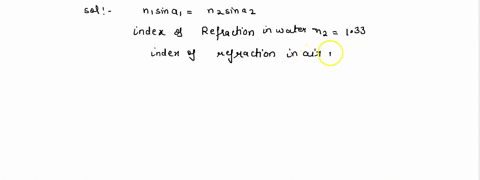 sol:- n₁sina₁ = n₂sina₂
index of Refraction in water n₂ = 1.33
index of refraction in air